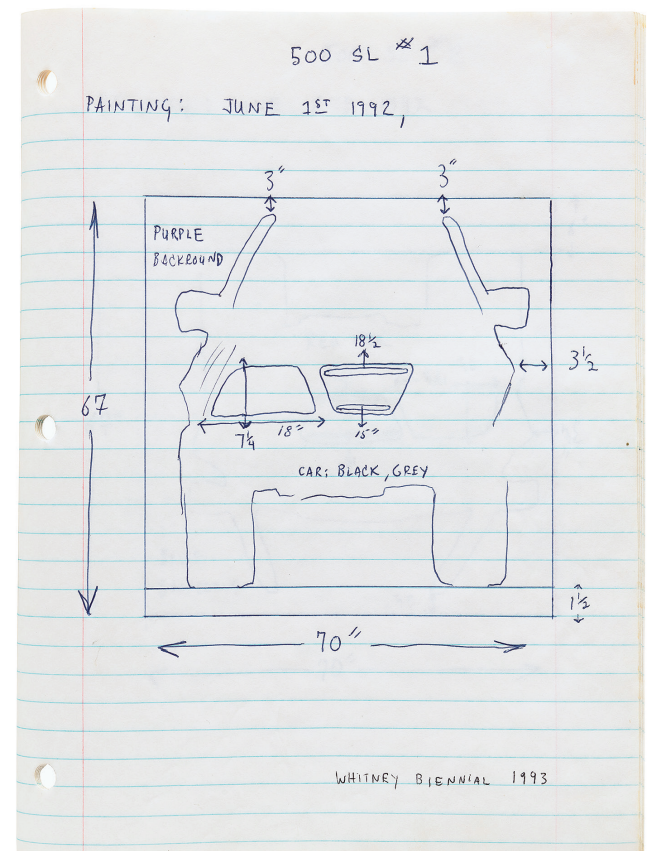 500 SL #1
PAINTING: JUNE 1ST 1992,
3" 3"
PURPLE
BACKROUND
18½
3½
67
18"
7¼
15"
CAR: BLACK, GREY
1½
70"
WHITNEY BIENNIAL 1993